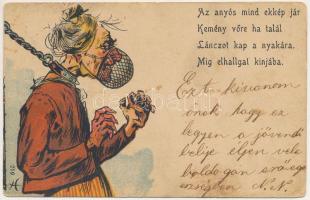 Az anyós mind ekkép jár
Kemény vőre ha talál
Lánczot kap a nyakára.
Míg elhallgat kinjába.
Ezt kivanom
önök hogy ez
legyen a jövendö
belije eljen vele
boldogan
N. N.